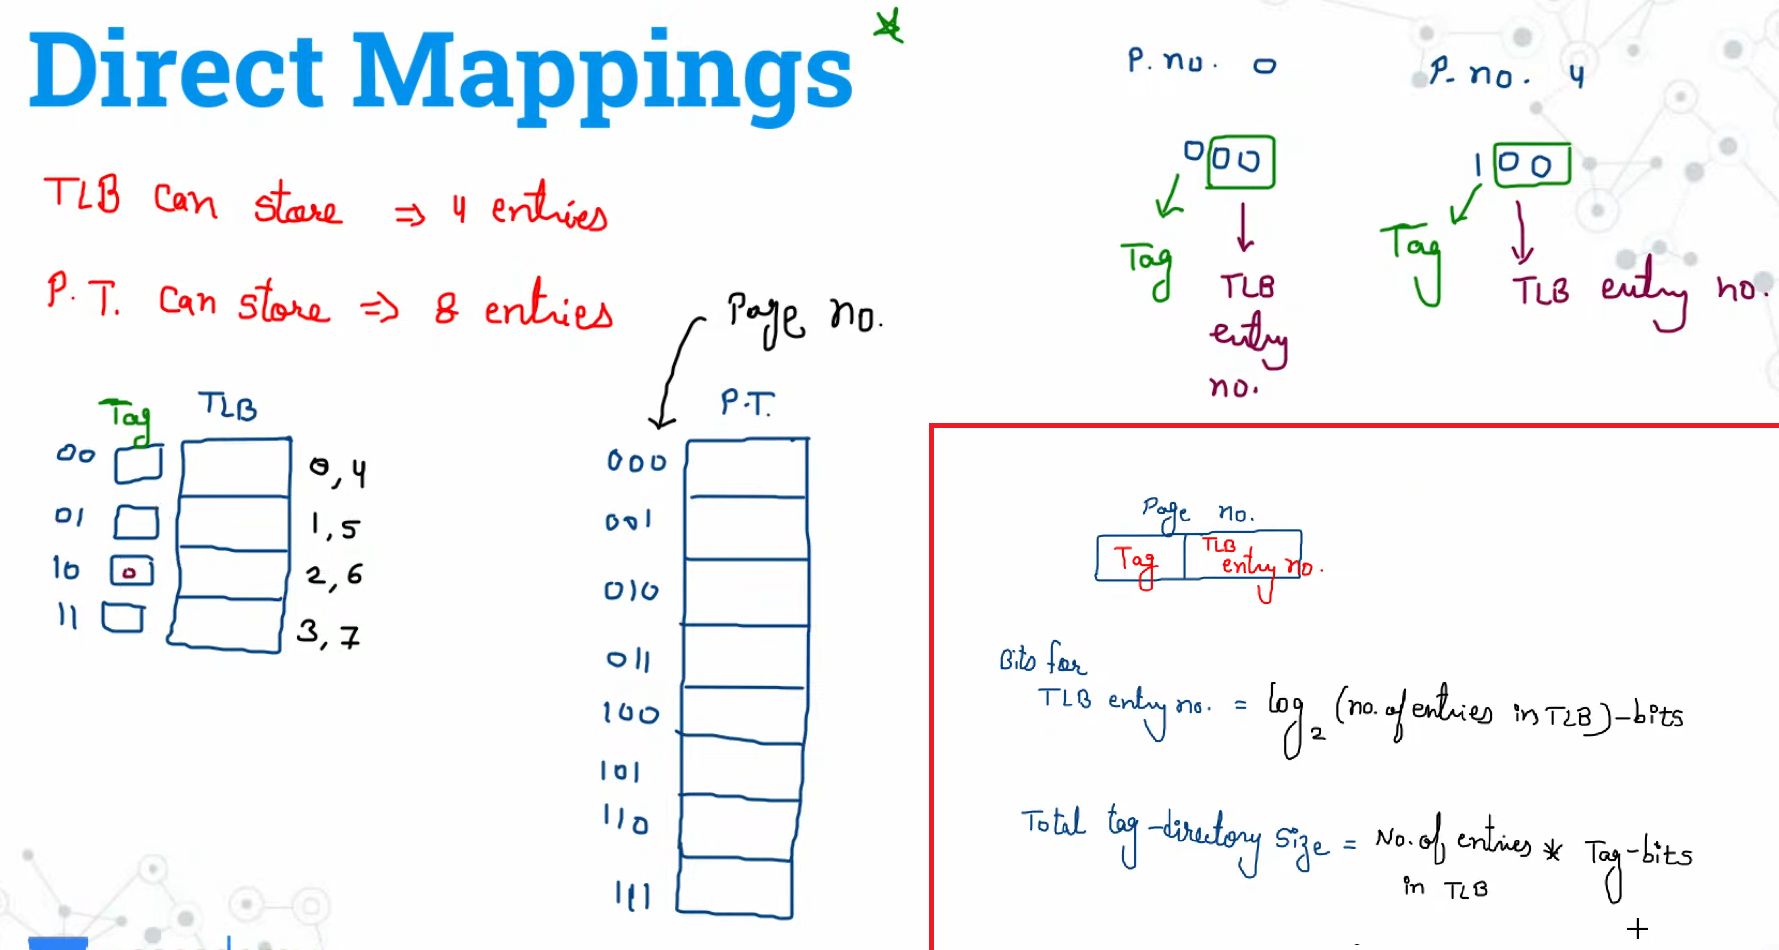 Direct Mappings
TLB can store ⇒ 4 entries
P.T. can store ⇒ 8 entries
Page no.
Tag TLB
00 0,4
01 1,5
10 0 2,6
11 3,7
P.T.
000
001
010
011
100
101
110
111
P. no. 0
000
Tag
TLB
entry
no.
P. no. 4
100
Tag
TLB entry no.
Page no.
Tag TLB
entry no.
Bits for
TLB entry no. = log2 (no. of entries in TLB)-bits
Total tag-directory size = No. of entries * Tag-bits
in TLB